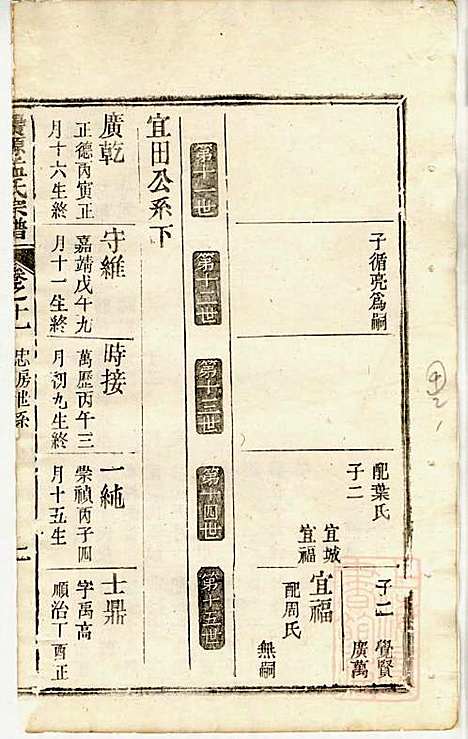 子循亮爲嗣
配葉氏
子二
宜城
宜福
子二
覺賢
廣萬
宜福
配周氏
無嗣
第十一世
第十二世
第十三世
第十四世
第十五世
宜田公系下
廣乾
正德丙寅正
月十六生終
守維
嘉靖戊午九
月十一生終
時接
萬歷丙午三
月初九生終
一純
崇禎丙子四
月十五生
士鼎
字禹高
順治丁酉正
氏宗譜
卷之十一
忠房世系
二